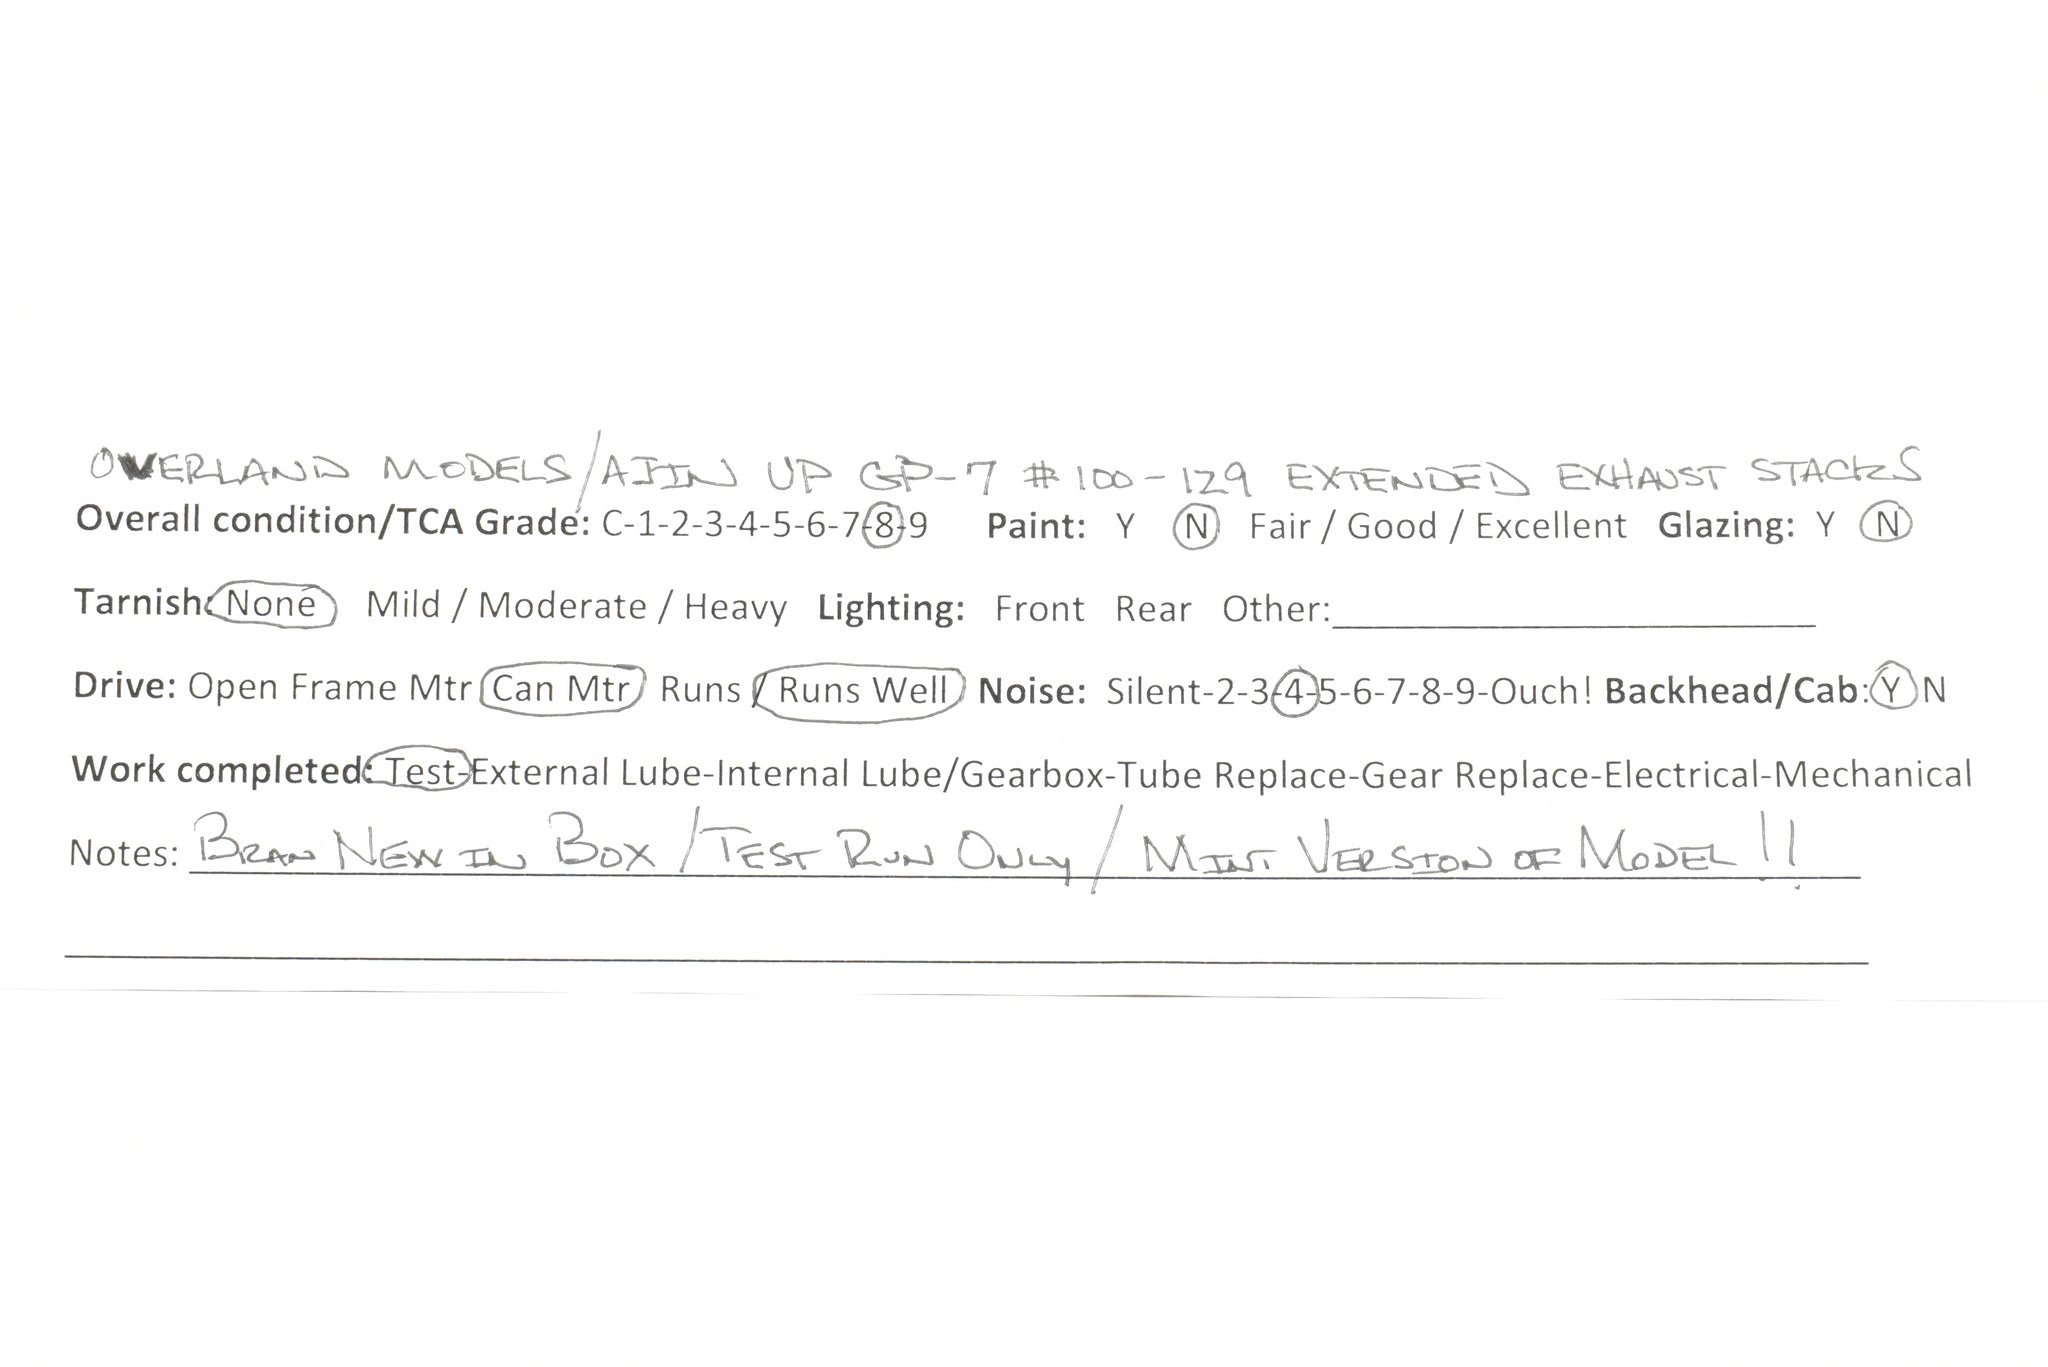 OVERLAND MODELS/AJIN UP GP-7 #100-129 EXTENDED EXHAUST STACKS
Overall condition/TCA Grade: C-1-2-3-4-5-6-7-8-9 Paint: Y N Fair / Good / Excellent Glazing: Y N
Tarnish: None Mild / Moderate / Heavy Lighting: Front Rear Other:
Drive: Open Frame Mtr Can Mtr Runs / Runs Well Noise: Silent-2-3-4-5-6-7-8-9-Ouch! Backhead/Cab: Y N
Work completed: Test-External Lube-Internal Lube/Gearbox-Tube Replace-Gear Replace-Electrical-Mechanical
Notes: BRAN NEW IN BOX / TEST RUN ONLY / MINT VERSION OF MODEL !!